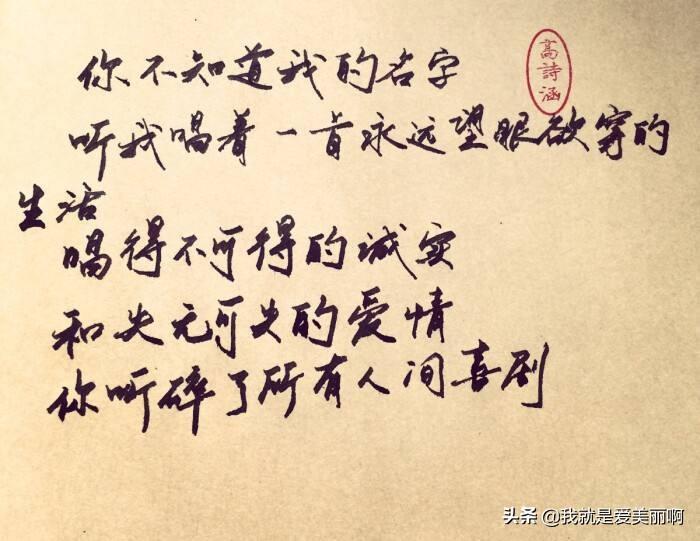 你不知道我的名字
高詩涵
听我唱着一首永远望眼欲穿的
生活
唱得不可得的诚实
和失无可失的爱情
你听碎了所有人间喜剧
头条 @我就是爱美丽啊